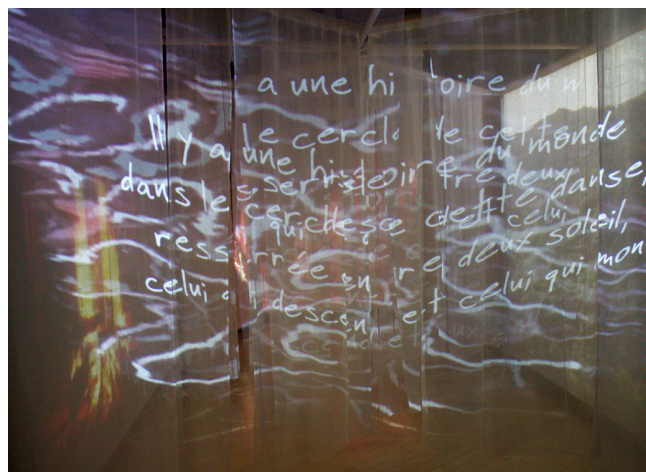 a une hi toire du m
le cercle de cette
Il y a une histoire du monde
entre deux
dans le cercle de cette danse,
qui desce et celui
resserrée entre deux soleil,
celui qui descend et celui qui mon